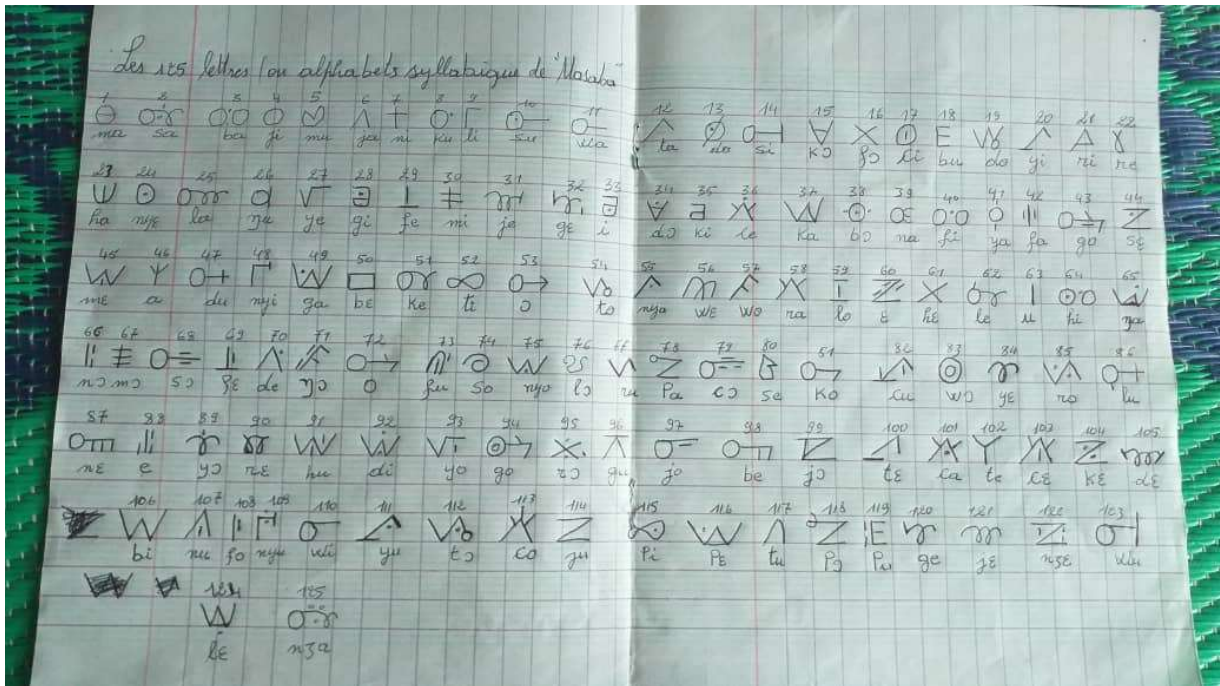 Les 125 lettres (ou alphabets syllabique de "Masaba"
1 2 3 4 5 6 7 8 9 10 11 12 13 14 15 16 17 18 19 20 21 22
ma sa ba ji mu ja ni ku li su wa ta do si kɔ fɔ ci bu da yi ri re
23 24 25 26 27 28 29 30 31 32 33 34 35 36 37 38 39 40 41 42 43 44
ha nyɛ la ŋu ye gi fe mi je gɛ i dɔ ki ce ka bɔ na fi ya fa go sɛ
45 46 47 48 49 50 51 52 53 54 55 56 57 58 59 60 61 62 63 64 65
mɛ a du nyi ga bɛ ke ti ɔ to nya wɛ wo ra lo ɛ hɛ le u hi ŋa
66 67 68 69 70 71 72 73 74 75 76 77 78 79 80 81 82 83 84 85 86
nɔ mɔ sɔ fɛ de ŋɔ o fu so nyo lɔ ru Pa cɔ se Ko cu wɔ yɛ ro lu
87 88 89 90 91 92 93 94 95 96 97 98 99 100 101 102 103 104 105
nɛ e yɔ rɛ hu di yo gɔ rɔ gu jo be jɔ tɛ ca te cɛ Kɛ dɛ
106 107 108 109 110 111 112 113 114 115 116 117 118 119 120 121 122 123
bi nu fo nyu wi yu tɔ co ju Pi Pɛ tu Pɔ Pu ge jɛ wu
124 125
lɛ